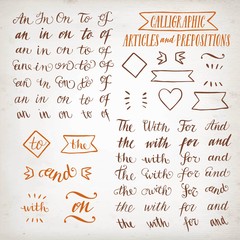 CALLIGRAPHIC
ARTICLES AND PREPOSITIONS
An In On To Of
an in on to of
an in on to of
an in on to of
an in on to of
an in on to of
an in on to of
to the
and
with on
The With For And
the with for and
the with for and
The with for and
the with for and
the with for and
the with for and